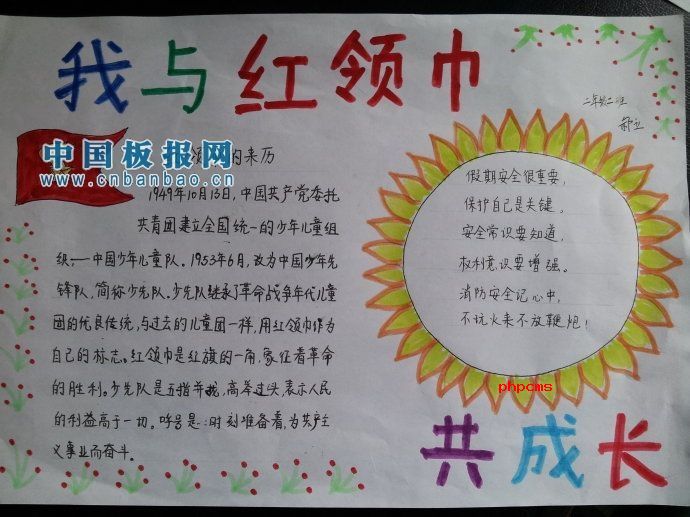 我与红领巾
二年级二班
中国板报网
www.cnbanbao.cn
的来历
1949年10月13日,中国共产党委托
共青团建立全国统一的少年儿童组
织——中国少年儿童队。1953年6月,改为中国少年先
锋队,简称少先队。少先队继承了革命战争年代儿童
团的优良传统,与过去的儿童团一样,用红领巾作为
自己的标志。红领巾是红旗的一角,象征着革命
的胜利。少先队是五指并拢,高举过头表示人民
的利益高于一切。呼号是:时刻准备着,为共产主
义事业而奋斗。
假期安全很重要,
保护自己是关键。
安全常识要知道,
权利意识要增强。
消防安全记心中,
不玩火来不放鞭炮!
phpcms
共成长